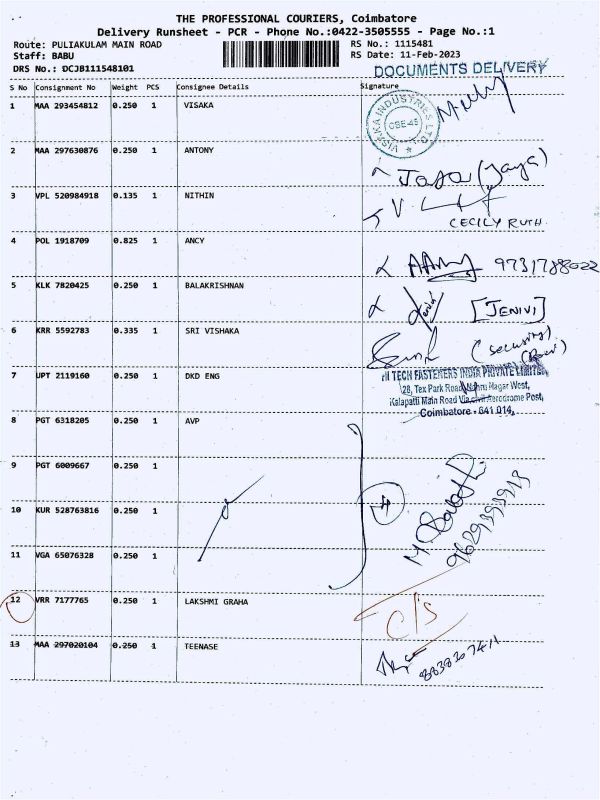 THE PROFESSIONAL COURIERS, Coimbatore
Delivery Runsheet - PCR - Phone No.:0422-3505555 - Page No.:1
Route: PULIAKULAM MAIN ROAD RS No.: 1115481
Staff: BABU RS Date: 11-Feb-2023
DRS No.: DCJB111548101 DOCUMENTS DELIVERY
S No Consignment No Weight PCS Consignee Details Signature
1 MAA 293454812 0.250 1 VISAKA
VISAKA INDUSTRIES LTD. CBE-45
2 MAA 297630876 0.250 1 ANTONY
Jaya (Jaya)
3 VPL 520984918 0.135 1 NITHIN
CECILY RUTH.
4 POL 1918709 0.825 1 ANCY
9731788022
5 KLK 7820425 0.250 1 BALAKRISHNAN
[JENIVI]
6 KRR 5592783 0.335 1 SRI VISHAKA
(Security)
(Ravi)
7 UPT 2119160 0.250 1 DKD ENG
TECH FASTENERS INDIA PRIVATE LIMITED
28, Tex Park Road, Nehru Nagar West,
Kalapatti Main Road Via Civil Aerodrome Post,
Coimbatore - 641 014.
8 PGT 6318205 0.250 1 AVP
9 PGT 6009667 0.250 1
10 KUR 528763816 0.250 1
9629393913
11 VGA 65076328 0.250 1
12 VRR 7177765 0.250 1 LAKSHMI GRAHA
C/S
13 MAA 297020104 0.250 1 TEENASE
8838267411